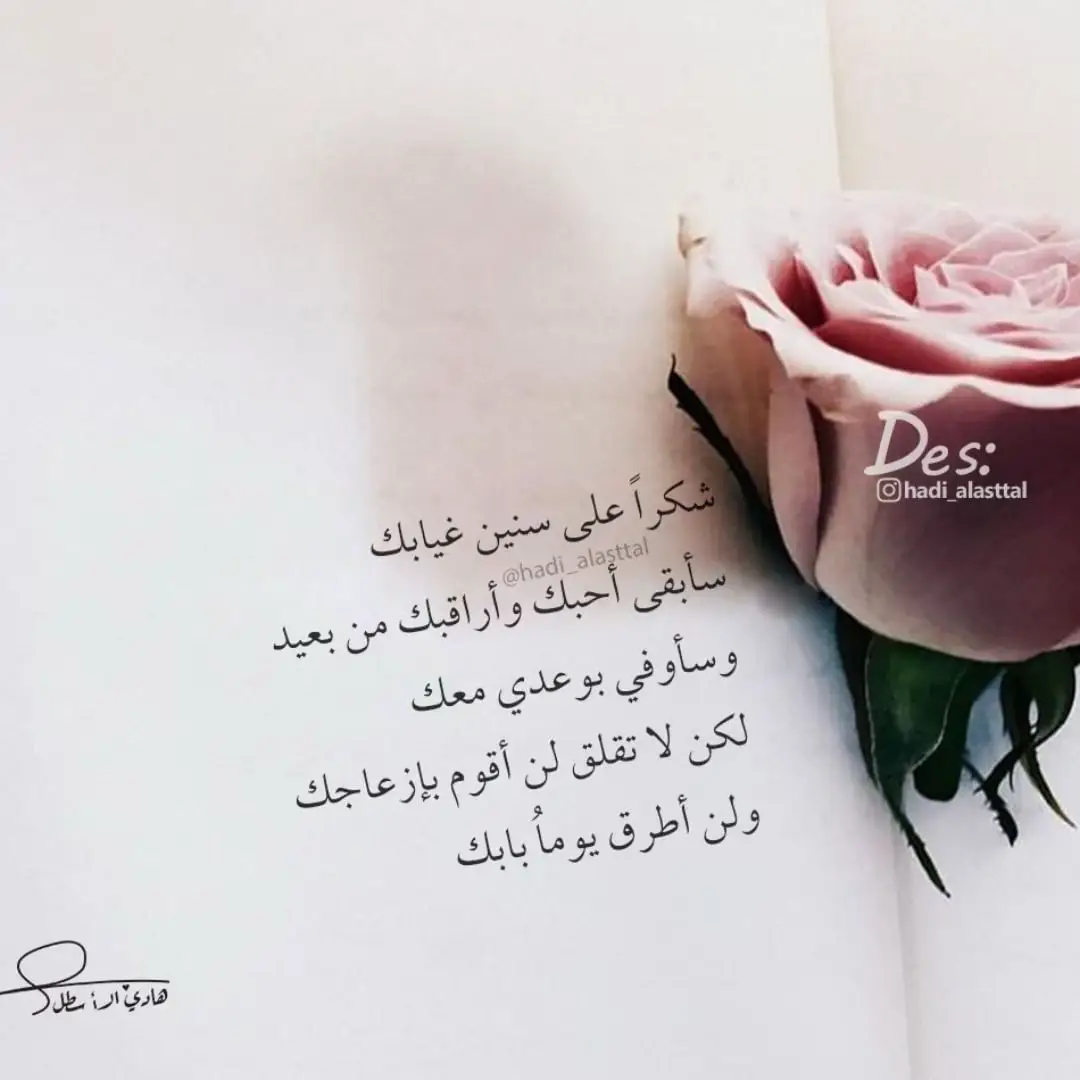 Des:
hadi_alasttal
شكراً على سنين غيابك
@hadi_alasttal
سأبقى أحبك وأراقبك من بعيد
وسأوفي بوعدي معك
لكن لا تقلق لن أقوم بإزعاجك
ولن أطرق يوماُ بابك
هادي الأسطل